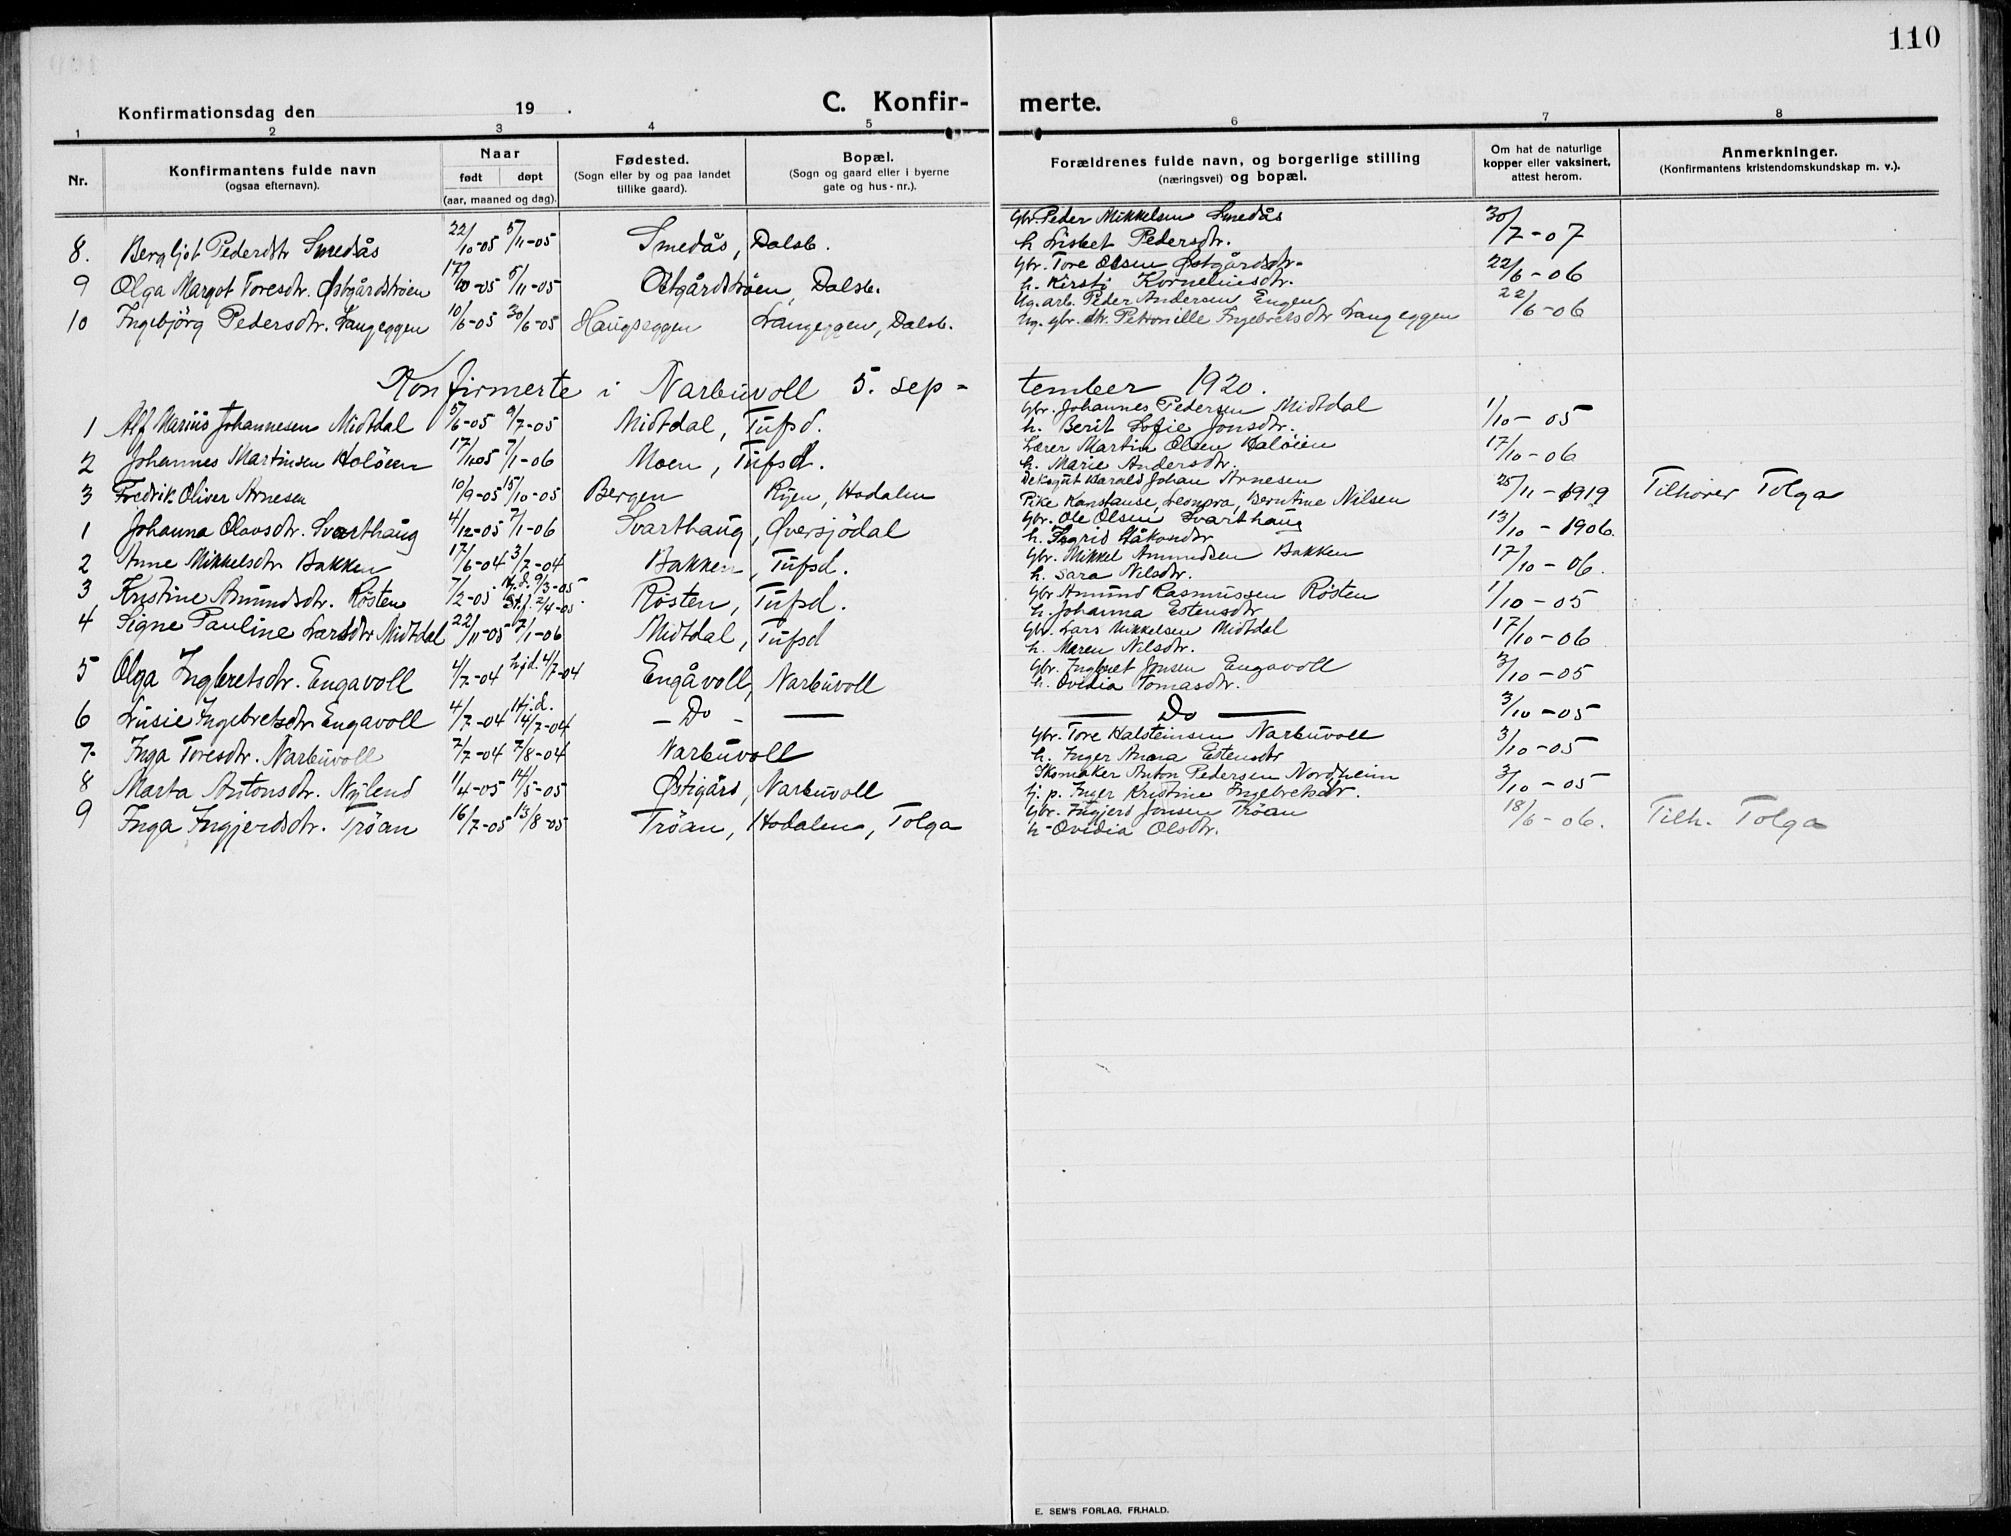 110
Konfirmationsdag den 19 . C. Konfir- merte.
1 2 3 4 5 6 7 8
Nr. Konfirmantens fulde navn (ogsaa efternavn). Naar født døpt (aar, maaned og dag). Fødested. (Sogn eller by og paa landet tillike gaard). Bopæl. (Sogn og gaard eller i byerne gate og hus-nr.). Forældrenes fulde navn, og borgerlige stilling (næringsvei) og bopæl. Om hat de naturlige kopper eller vaksinert, attest herom. Anmerkninger. (Konfirmantens kristendomskundskap m. v.).
8. Bergljot Pedersdtr Smedås 22/10-05 5/11-05 Smedås, Dalsb. Gbr. Peder Mikkelsen Smedås 30/7-07
h Lisbet Pedersdtr.
9 Olga Margot Toresdtr. Østgårdstrøen 17/10-05 5/11-05 Østgårdstrøen, Dalsb. Gbr. Tore Olsen Østgårdstr- 22/6-06
h. Kirsti Korneliusdtr.
10 Ingebjörg Pedersdtr. Langeggen 10/6-05 30/6-05 Haugseggen Langeggen, Dalsb. Ug. arb. Peder Andersen Engen 22/6-06
ug. gbr. dtr. Petronille Ingebretsdtr Langeggen
Konfirmerte i Narbuvoll 5. sep- tember 1920.
1 Alf Marius Johannesen Midtdal 5/6-05 9/7-05 Midtdal, Tufsd. Gbr. Johannes Pedersen Midtdal 1/10-05
h. Berit Sofie Jonsdtr.
2 Johannes Martinsen Holöien 17/11-05 7/1-06 Moen, Tufsd. Lærer Martin Olsen Holöien 17/10-06
h. Marie Andersdtr.
3 Fredrik Oliver Arnesen 10/9-05 15/10-05 Bergen Ryen, Hodalen Deksgut Harald Johan Arnesen 25/11-1919 Tilhører Tolga
Pike Konstanse, Leonora, Berntine Nilsen
1 Johanna Olavsdtr. Svarthaug 4/12-05 7/1-06 Svarthaug, Øversjödal Gbr. Ole Olsen Svarthaug 13/10-1906.
h. Ingrid Håkonsdtr
2 Anne Mikkelsdtr Bakken 17/6-04 3/7-04 Bakken, Tufsd. Gbr. Mikkel Amundsen Bakken 17/10-06.
h. Sara Nilsdtr.
3 Kristine Amundsdtr. Røsten 7/2-05 Hj.d. 9/3-05 St.f. 2/4-05. Røsten, Tufsd. Gbr Amund Rasmussen Røsten 1/10-05
h. Johanna Estensdtr
4 Signe Pauline Larsdtr Midtdal 22/11-05 7/1-06 Midtdal, Tufsd Gbr. Lars Mikkelsen Midtdal 17/10-06
h. Maren Nilsdtr.
5 Olga Ingebretsdtr. Engavoll 4/7-04 hjd. 4/7-04 Engåvoll, Narbuvoll Gbr. Ingebret Jonsen Engavoll 3/10-05
h. Ovidia Tomasdtr.
6 Lusie Ingebretsdtr Engavoll 4/7-04 Hj.d. 4/7-04 - Do - — — Do — 3/10-05
7- Inga Toresdtr. Narbuvoll 7/7-04 7/8-04 Narbuvoll Gbr. Tore Halsteinsen Narbuvoll 3/10-05
h. Inger Anna Estensdtr
8 Marta Antonsdtr. Nylend 1/4-05 14/5-05 Østigård, Narbuvoll Skomaker Anton Pedersen Nordheim 3/10-05
tj. p. Inger Kristine Ingebretsdtr.
9 Inga Ingjerdsdtr. Tröan 16/7-05 13/8-05 Tröan, Hodalen, Tolga Gbr. Ingjerd Jonsen Tröan 18/6-06. Tilh. Tolga
h- Ovidia Olsdtr.
E. SEM'S FORLAG, FR.HALD.